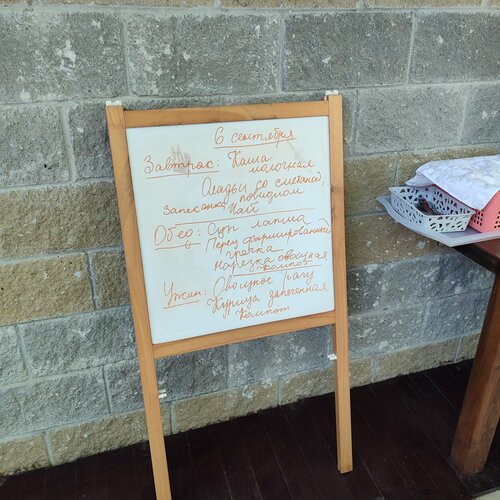 6 сентября
Завтрак: Каша
молочная
Оладьи со сметаной,
Запеканка повидлом
Чай
Обед: Суп лапша
Перец фаршированный
гречка
нарезка овощная
компот
Ужин: Овощное рагу
Курица запеченная
Компот